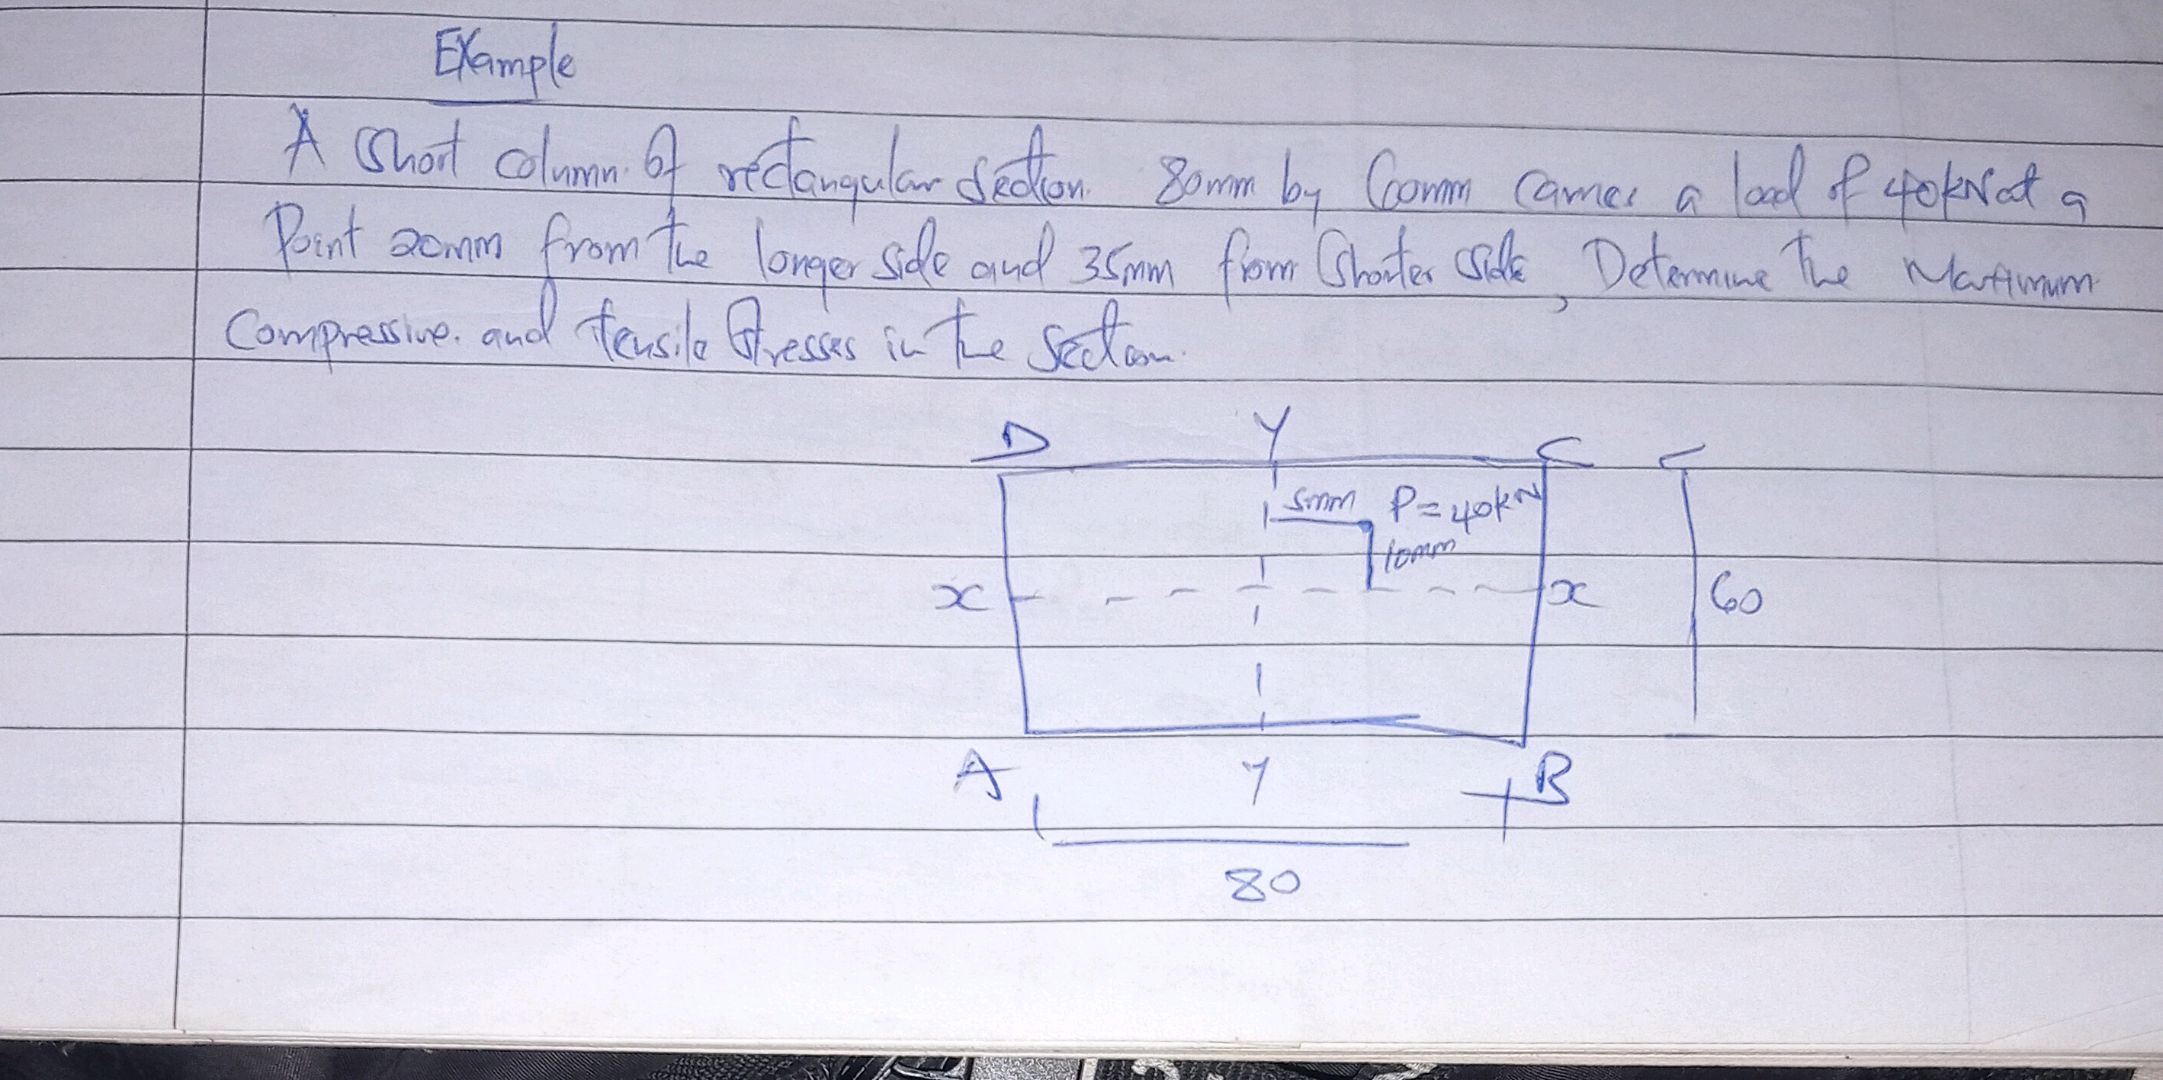 Example
A Short column of rectangular section 80mm by 60mm carries a load of 40kN at a
Point 20mm from the longer side and 35mm from Shorter side, Determine the Maximum
Compressive and tensile Stresses in the section.
D Y C
5mm P=40kN
10mm
x x 60
A Y B
80